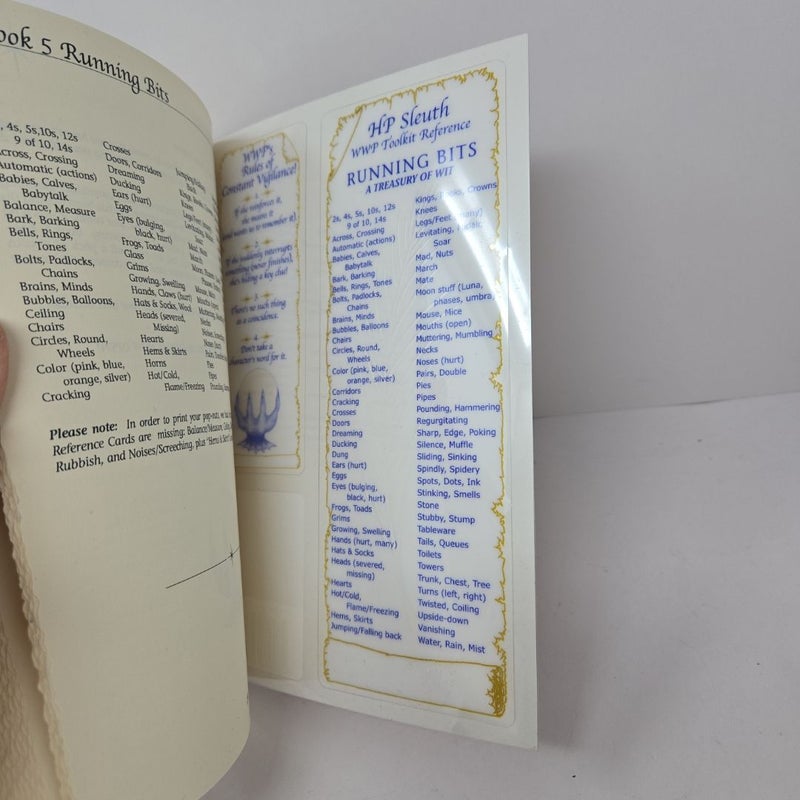 ook 5 Running Bits
, 4s, 5s,10s, 12s
9 of 10, 14s
Across, Crossing
Automatic (actions)
Babies, Calves,
Babytalk
Balance, Measure
Bark, Barking
Bells, Rings,
Tones
Bolts, Padlocks,
Chains
Brains, Minds
Bubbles, Balloons,
Ceiling
Chairs
Circles, Round,
Wheels
Color (pink, blue,
orange, silver)
Cracking
Crosses
Doors, Corridors
Dreaming
Ducking
Ears (hurt)
Eggs
Eyes (bulging,
black, hurt)
Frogs, Toads
Glass
Grims
Growing, Swelling
Hands, Claws (hurt)
Hats & Socks, Wool
Heads (severed,
missing)
Hearts
Hems & Skirts
Horns
Hot/Cold,
Flame/Freezing
Please note: In order to print your pop-out, we
Reference Cards are missing: Balance/Measure,
Rubbish, and Noises/Screeching, plus
WWP's
Rules of
Constant Vigilance!
1.
If she reinforces it,
she means it
(and wants us to remember it).
2.
If she suddenly interrupts
something (never finishes),
she's hiding a key clue!
3.
There's no such thing
as a coincidence.
4.
Don't take a
character's word for it.
HP Sleuth
WWP Toolkit Reference
RUNNING BITS
A TREASURY OF WIT
2s, 4s, 5s, 10s, 12s
9 of 10, 14s
Across, Crossing
Automatic (actions)
Babies, Calves,
Babytalk
Bark, Barking
Bells, Rings, Tones
Bolts, Padlocks,
Chains
Brains, Minds
Bubbles, Balloons
Chairs
Circles, Round,
Wheels
Color (pink, blue,
orange, silver)
Corridors
Cracking
Crosses
Doors
Dreaming
Ducking
Dung
Ears (hurt)
Eggs
Eyes (bulging,
black, hurt)
Frogs, Toads
Grims
Growing, Swelling
Hands (hurt, many)
Hats & Socks
Heads (severed,
missing)
Hearts
Hot/Cold,
Flame/Freezing
Hems, Skirts
Jumping/Falling back
Kings, Crowns
Knees
Legs/Feet (many)
Levitating,
Soar
Mad, Nuts
March
Mate
Moon stuff (Luna,
phases, umbra)
Mouse, Mice
Mouths (open)
Muttering, Mumbling
Necks
Noses (hurt)
Pairs, Double
Pies
Pipes
Pounding, Hammering
Regurgitating
Sharp, Edge, Poking
Silence, Muffle
Sliding, Sinking
Spindly, Spidery
Spots, Dots, Ink
Stinking, Smells
Stone
Stubby, Stump
Tableware
Tails, Queues
Toilets
Towers
Trunk, Chest, Tree
Turns (left, right)
Twisted, Coiling
Upside-down
Vanishing
Water, Rain, Mist